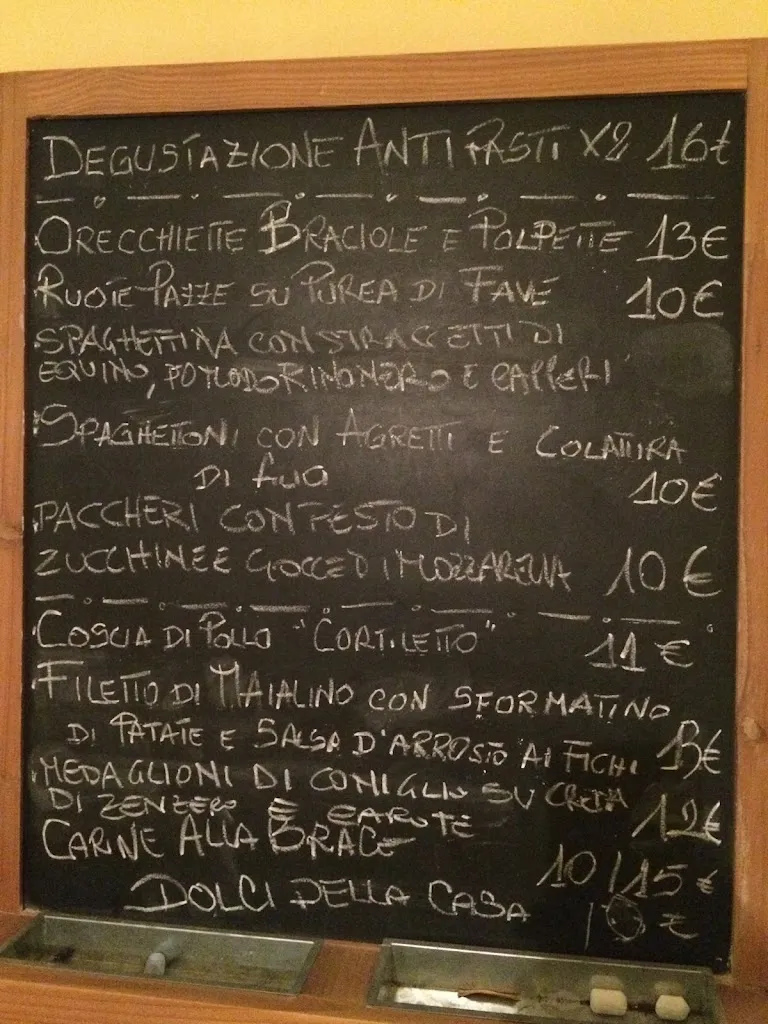 DEGUSTAZIONE ANTIPASTI X2 16€
ORECCHIETTE BRACIOLE E POLPETTE 13€
RUOTE PAZZE SU PUREA DI FAVE 10€
SPAGHETTINA CON STRACCETTI DI
EQUINO, POMODORINO NERO E CAPPERI
SPAGHETTONI CON AGRETTI E COLATURA
DI ALICI 10€
PACCHERI CON PESTO DI
ZUCCHINE E GOCCE DI MOZZARELLA 10€
COSCIA DI POLLO "CORTILETTO" 11€
FILETTO DI MAIALINO CON SFORMATINO
DI PATATE E SALSA D'ARROSTO AI FICHI 13€
MEDAGLIONI DI CONIGLIO SU CREMA
DI ZENZERO E CAROTE 12€
CARNE ALLA BRACE 10/15€
DOLCI DELLA CASA